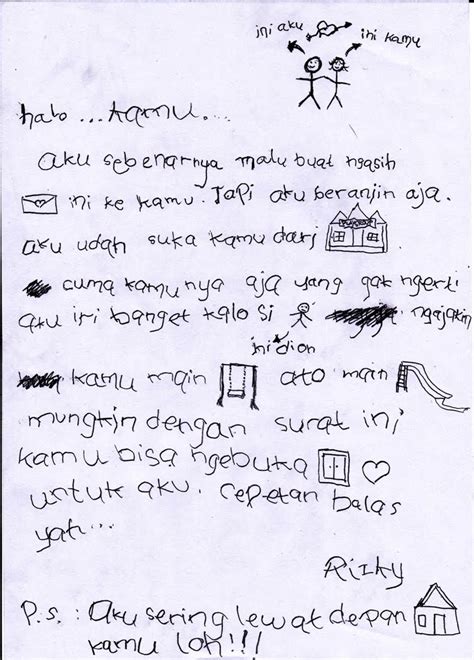 ini aku
ini kamu
halo...kamu....
aku sebenarnya malu buat ngasih
ini ke kamu. Tapi aku beranjin aja.
aku udah suka kamu dari
cuma kamunya aja yang gak ngerti
aku iri banget kalo si ngajakin
ini dion
kamu main ato main
mungkin dengan surat ini
kamu bisa ngebuka
untuk aku. cepetan balas
yah...
Rizky
P.s.: Aku sering lewat depan
kamu loh!!!